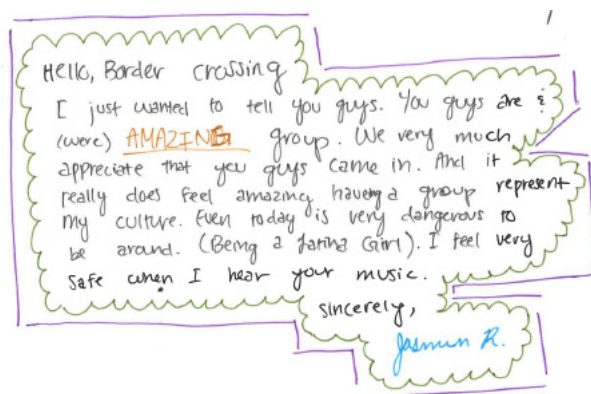 1
Hello, Border crossing
I just wanted to tell you guys. You guys are &
(were) AMAZING group. We very much
appreciate that you guys came in. And it
really does feel amazing having a group represent
my culture. Even today is very dangerous to
be around. (Being a Latina Girl). I feel very
safe when I hear your music.
sincerely,
Jasmin R.